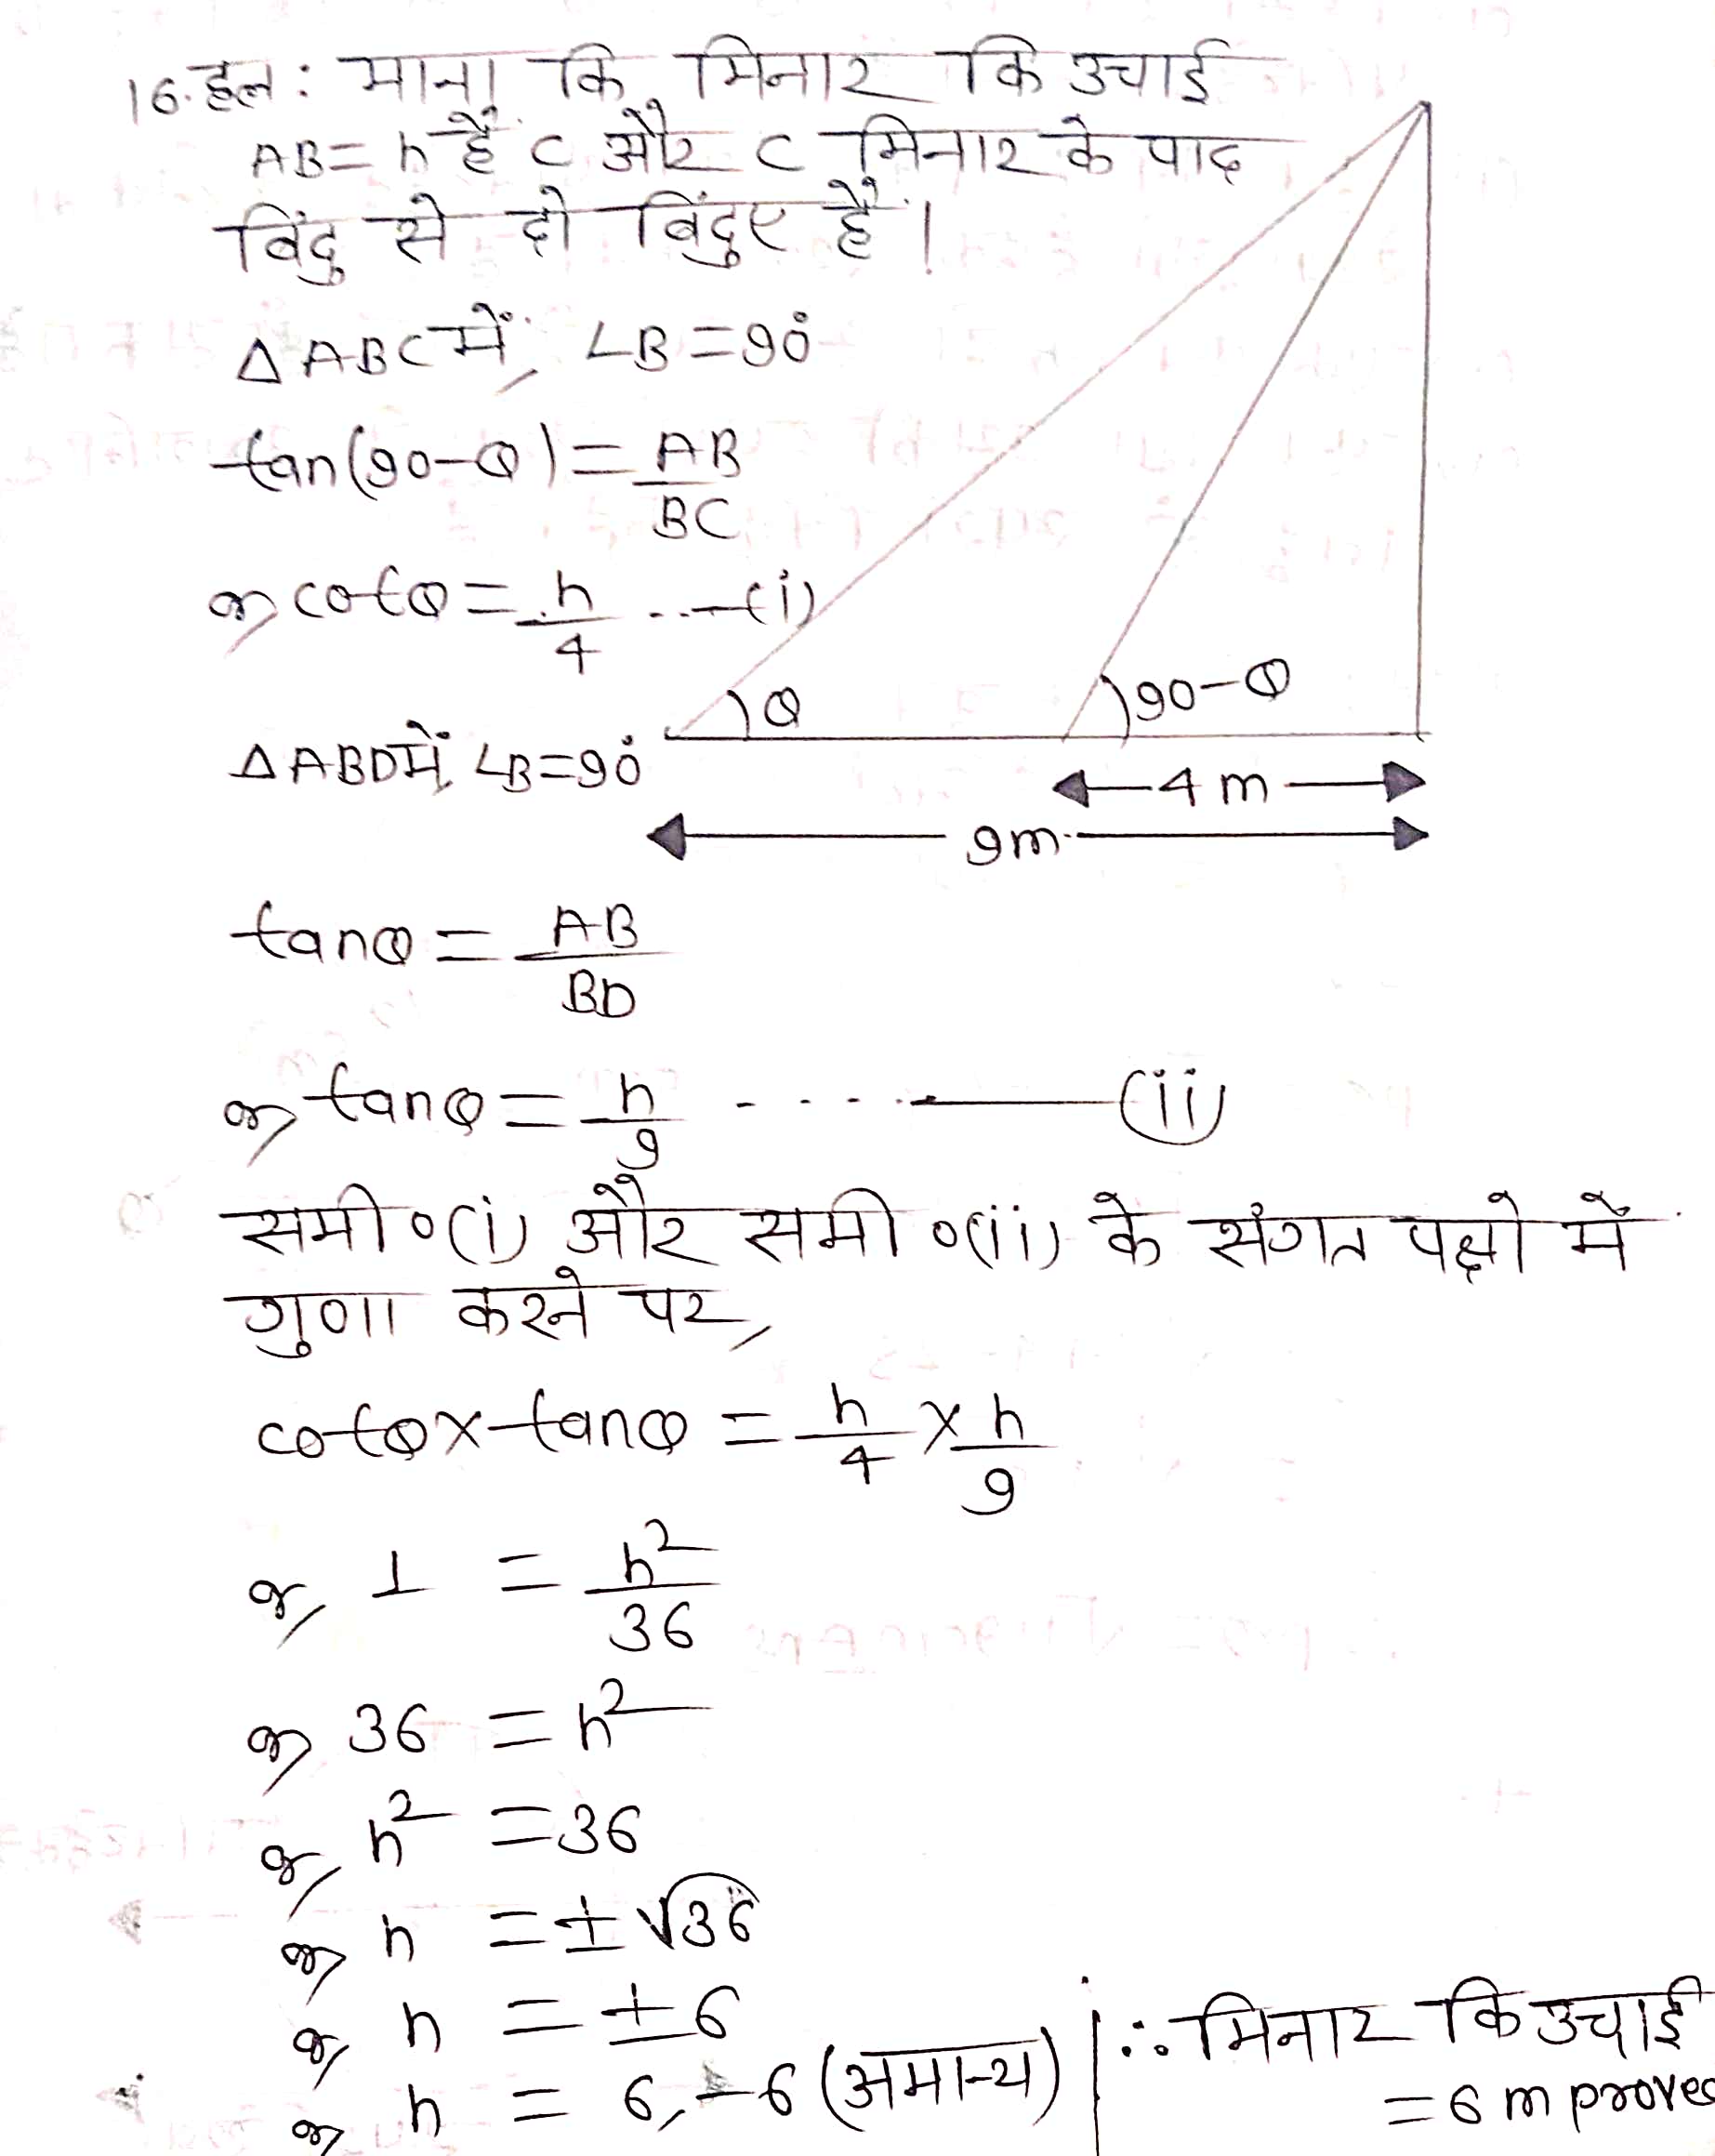 16. हल: माना कि मिनार कि उचाई
AB = h हैं C और C मिनार के पाद
बिंदु से दो बिंदुए हैं।
△ ABC में, ∠B = 90°
tan(90-θ) = AB/BC
or, cotθ = h/4 ...—(i)
θ
90-θ
△ ABD में, ∠B = 90°
4 m
9m
tanθ = AB/BD
or, tanθ = h/9 ----- (ii)
समी०(i) और समी०(ii) के संगत पक्षो में
गुणा करने पर,
cotθ × tanθ = h/4 × h/9
or, 1 = h²/36
or, 36 = h²
or, h² = 36
or, h = ± √36
or, h = ± 6
or, h = 6, -6 (अमान्य)
∴ मिनार कि उचाई
= 6 m proved